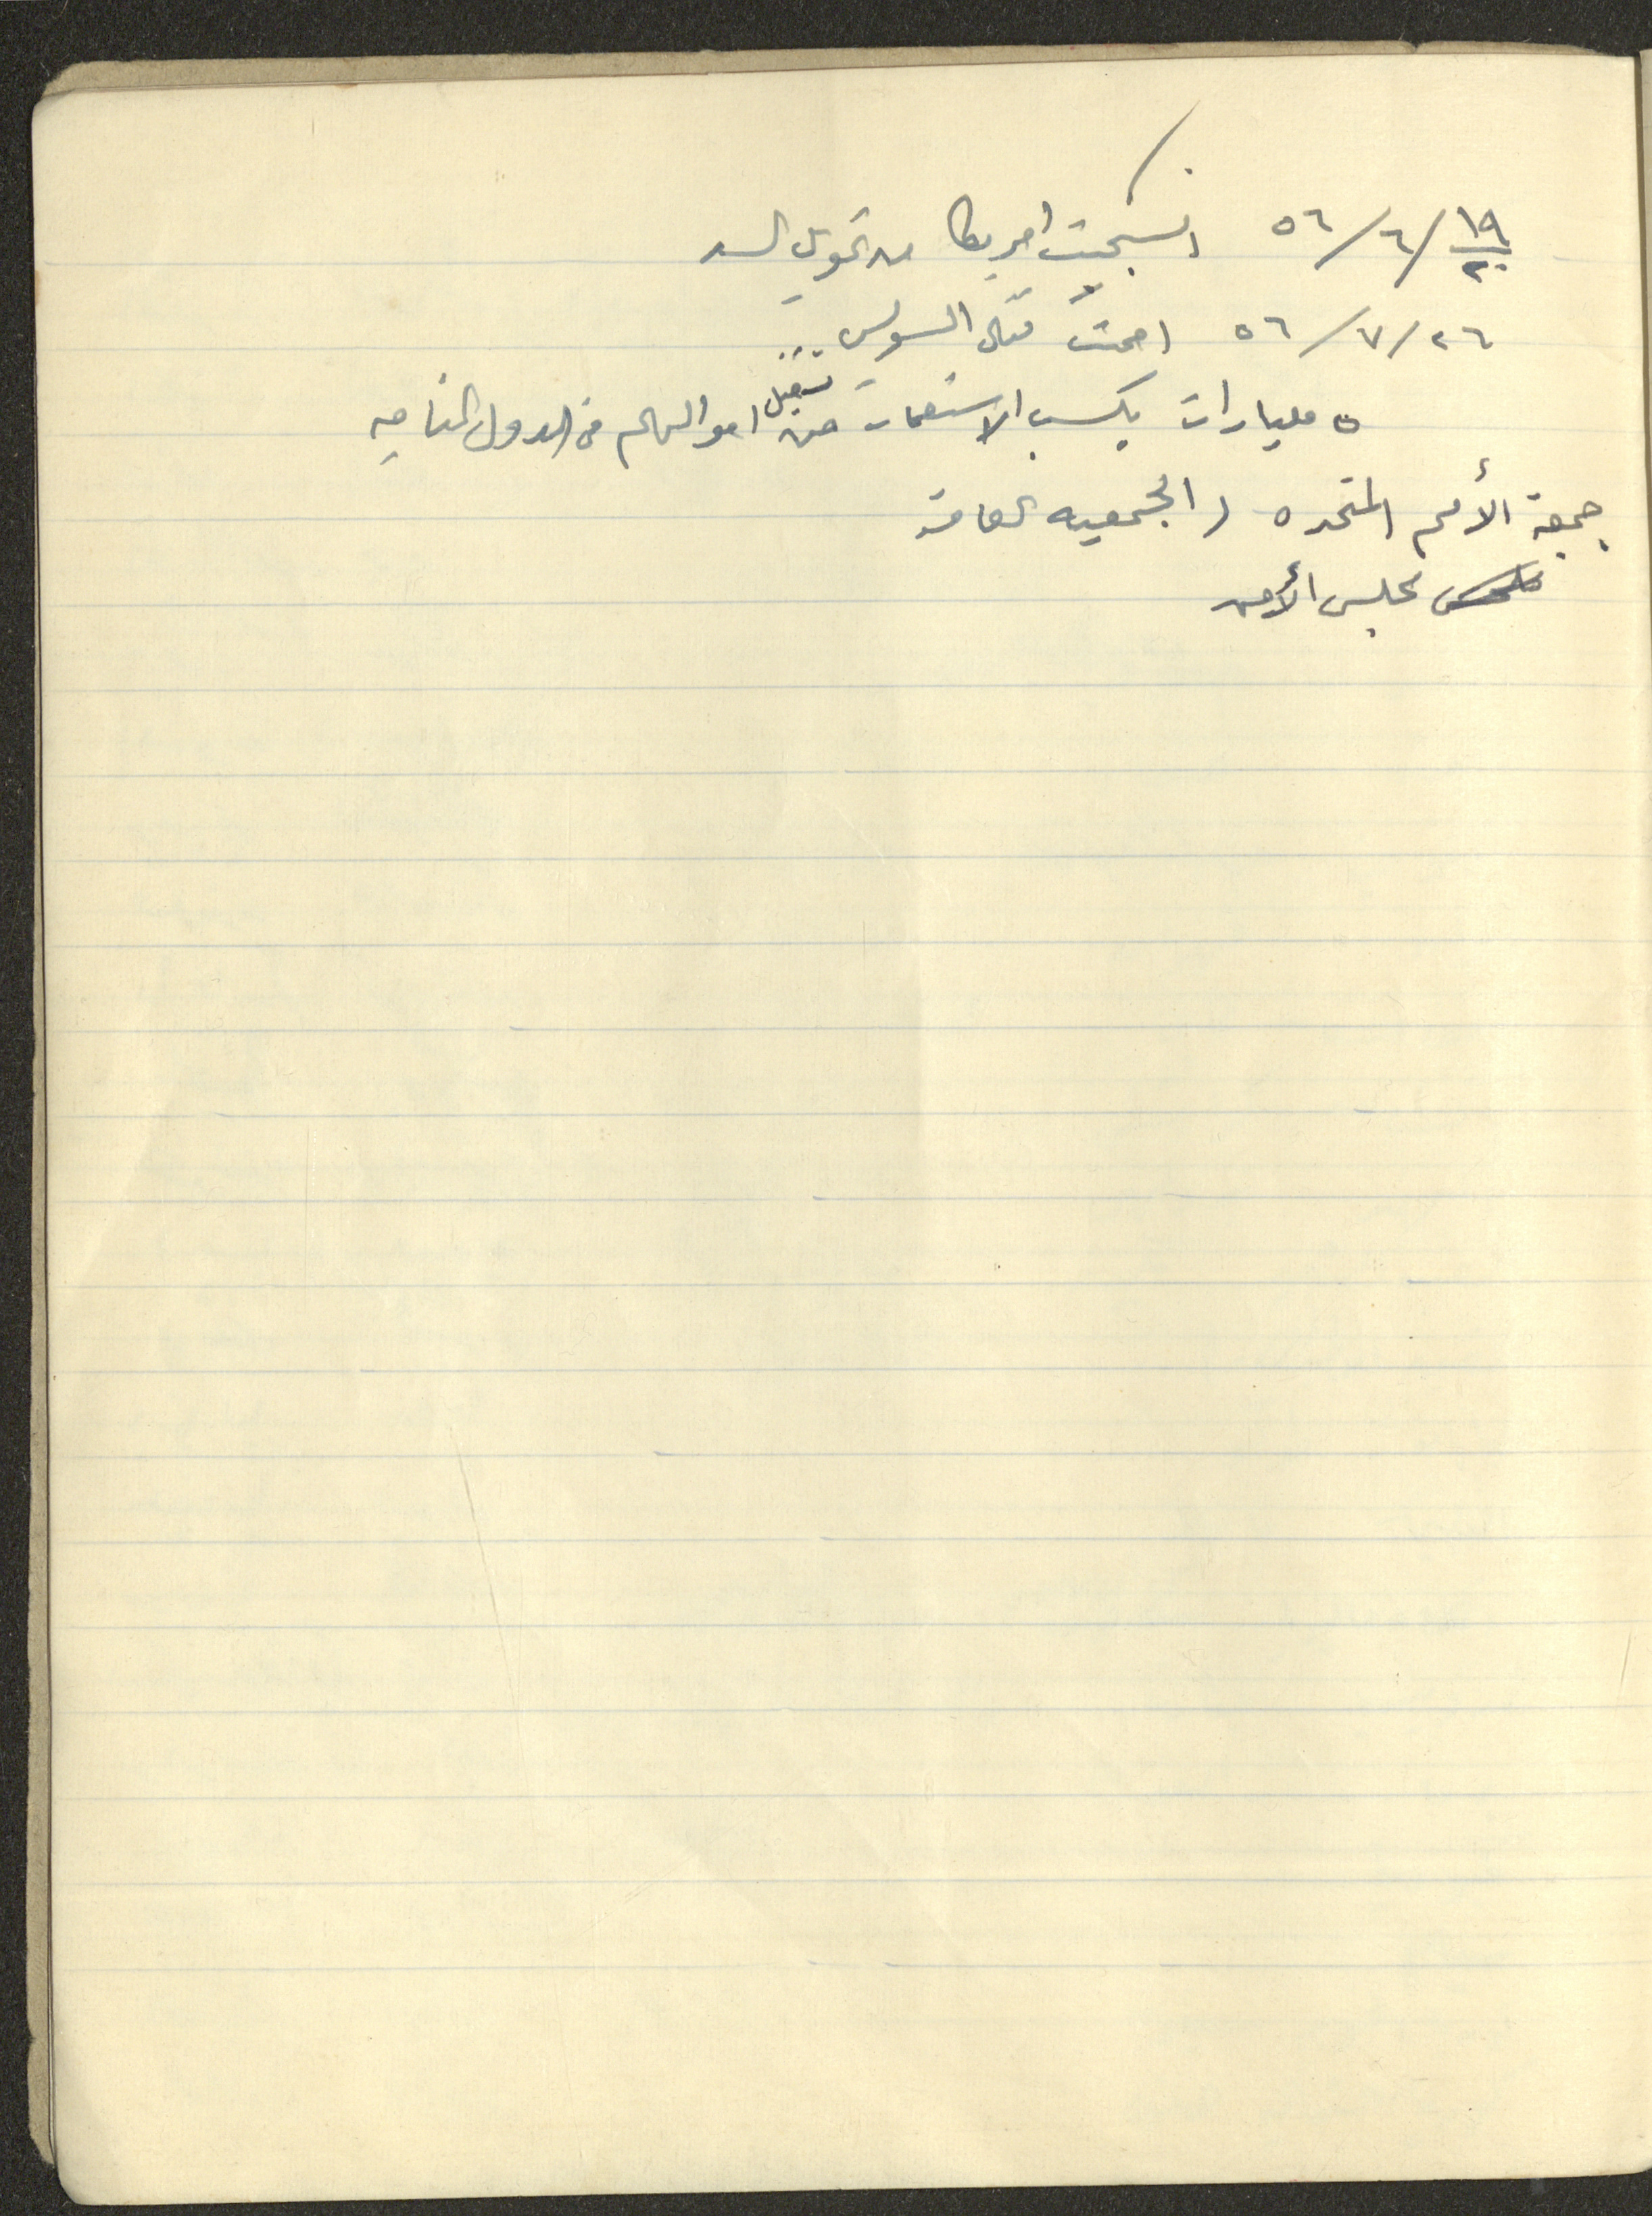 ١٩/٦/٥٦ انسحبت امريكا من تمويل السد
٢٠
٢٦/٧/٥٦ اممت قنال السويس
٥ مليارات يكسب الاستعمار من تشغيل اموالهم فى الدول الناميه
جمعية الأمم المتحده ( الجمعيه العامة
مجلس الأمن